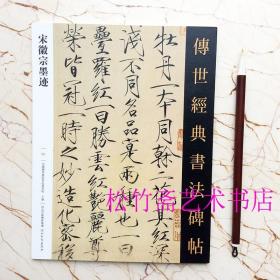 傳世經典書法碑帖
牡丹一本同幹二
淺不同名品寔兩種也一曰
疊羅紅一曰勝雲紅艷麗尊
榮皆冠一時之妙造化密移
宋徽宗墨迹
松竹斋艺术书店